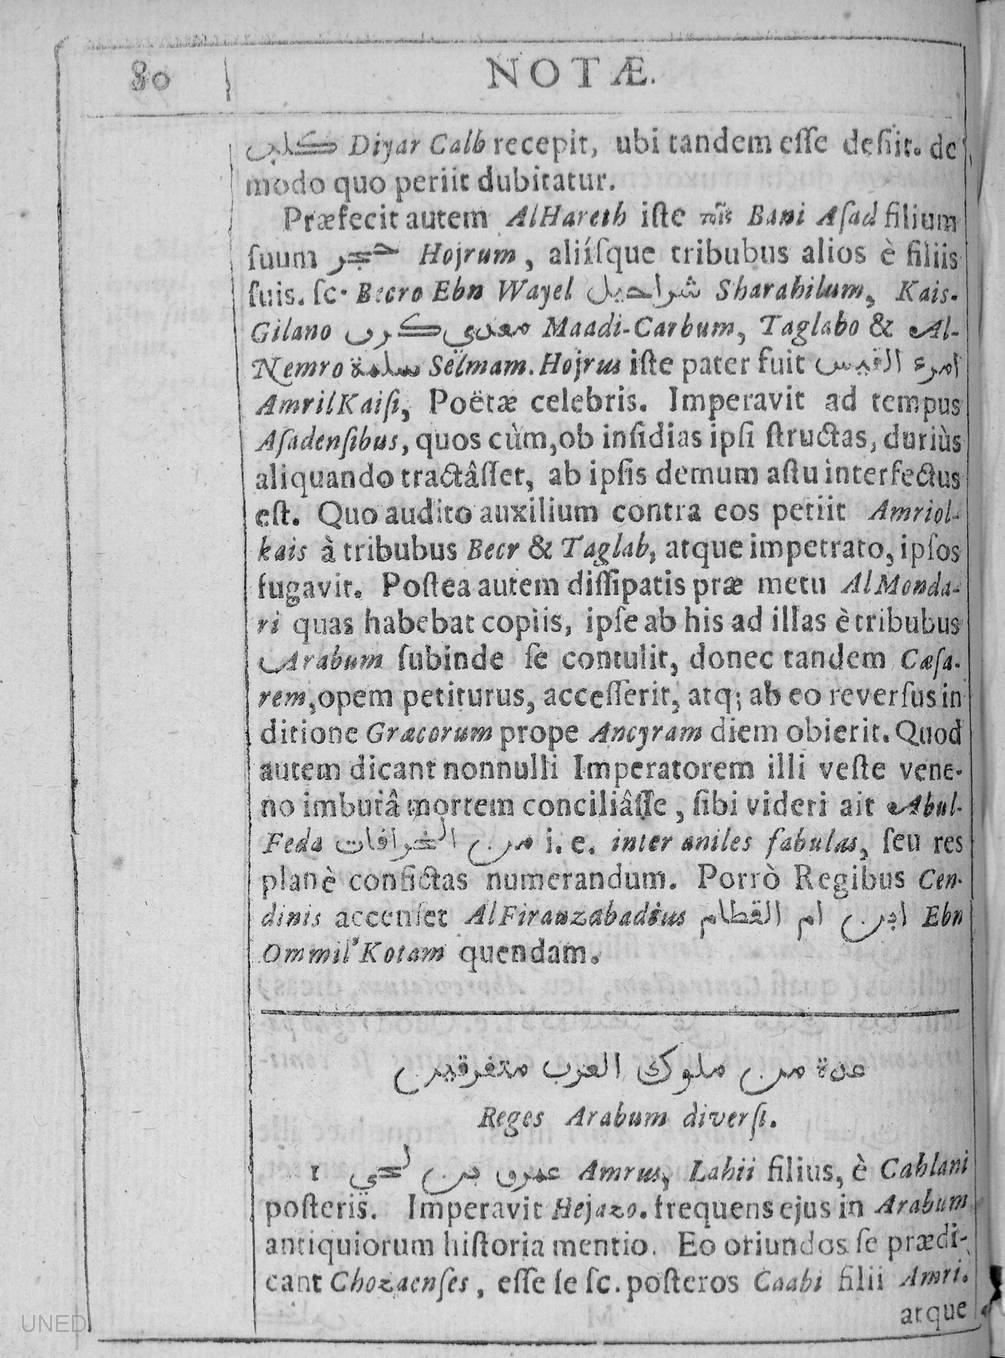 80
NOTÆ.
كلب Diyar Calb recepit, ubi tandem eſſe deſiit. de
modo quo periit dubitatur.
Præfecit autem AlHareth iſte Bani Aſad filium
ſuum حجر Hojrum, aliíſque tribubus alios è filiis
ſuis. ſc. Becro Ebn Wayel شراحيل Sharahilum, Kais-
Gilano معدي كرب Maadi-Carbum, Taglabo & Al-
Nemro سلمة Selmam. Hojrus iſte pater fuit امرء القيس
AmrilKaiſi, Poëtæ celebris. Imperavit ad tempus
Aſadenſibus, quos cùm, ob inſidias ipſi ſtructas, duriùs
aliquando tractâſſet, ab ipſis demum aſtu interfectus
eſt. Quo audito auxilium contra eos petiit Amriol-
kais à tribubus Becr & Taglab, atque impetrato, ipſos
fugavit. Poſtea autem diſſipatis præ metu AlMonda-
ri quas habebat copiis, ipſe ab his ad illas è tribubus
Arabum ſubinde ſe contulit, donec tandem Cæſa-
rem, opem petiturus, acceſſerit, atq; ab eo reverſus in
ditione Græcorum prope Ancyram diem obierit. Quod
autem dicant nonnulli Imperatorem illi veſte vene-
no imbutâ mortem conciliâſſe, ſibi videri ait Abul-
Feda من الخرافات i. e. inter aniles fabulas, ſeu res
planè confictas numerandum. Porrò Regibus Cen-
dinis accenſet AlFirauzabadius ابن ام القطام Ebn
Ommil'Kotam quendam.
عدة من ملوك العرب متفرقين
Reges Arabum diverſi.
1 عمرو بن لحي Amrus, Lahii filius, è Cahlani
poſteris. Imperavit Hejazo. frequens ejus in Arabum
antiquiorum hiſtoria mentio. Eo oriundos ſe prædi-
cant Chozaenſes, eſſe ſe ſc. poſteros Caabi filii Amri.
atque
UNED